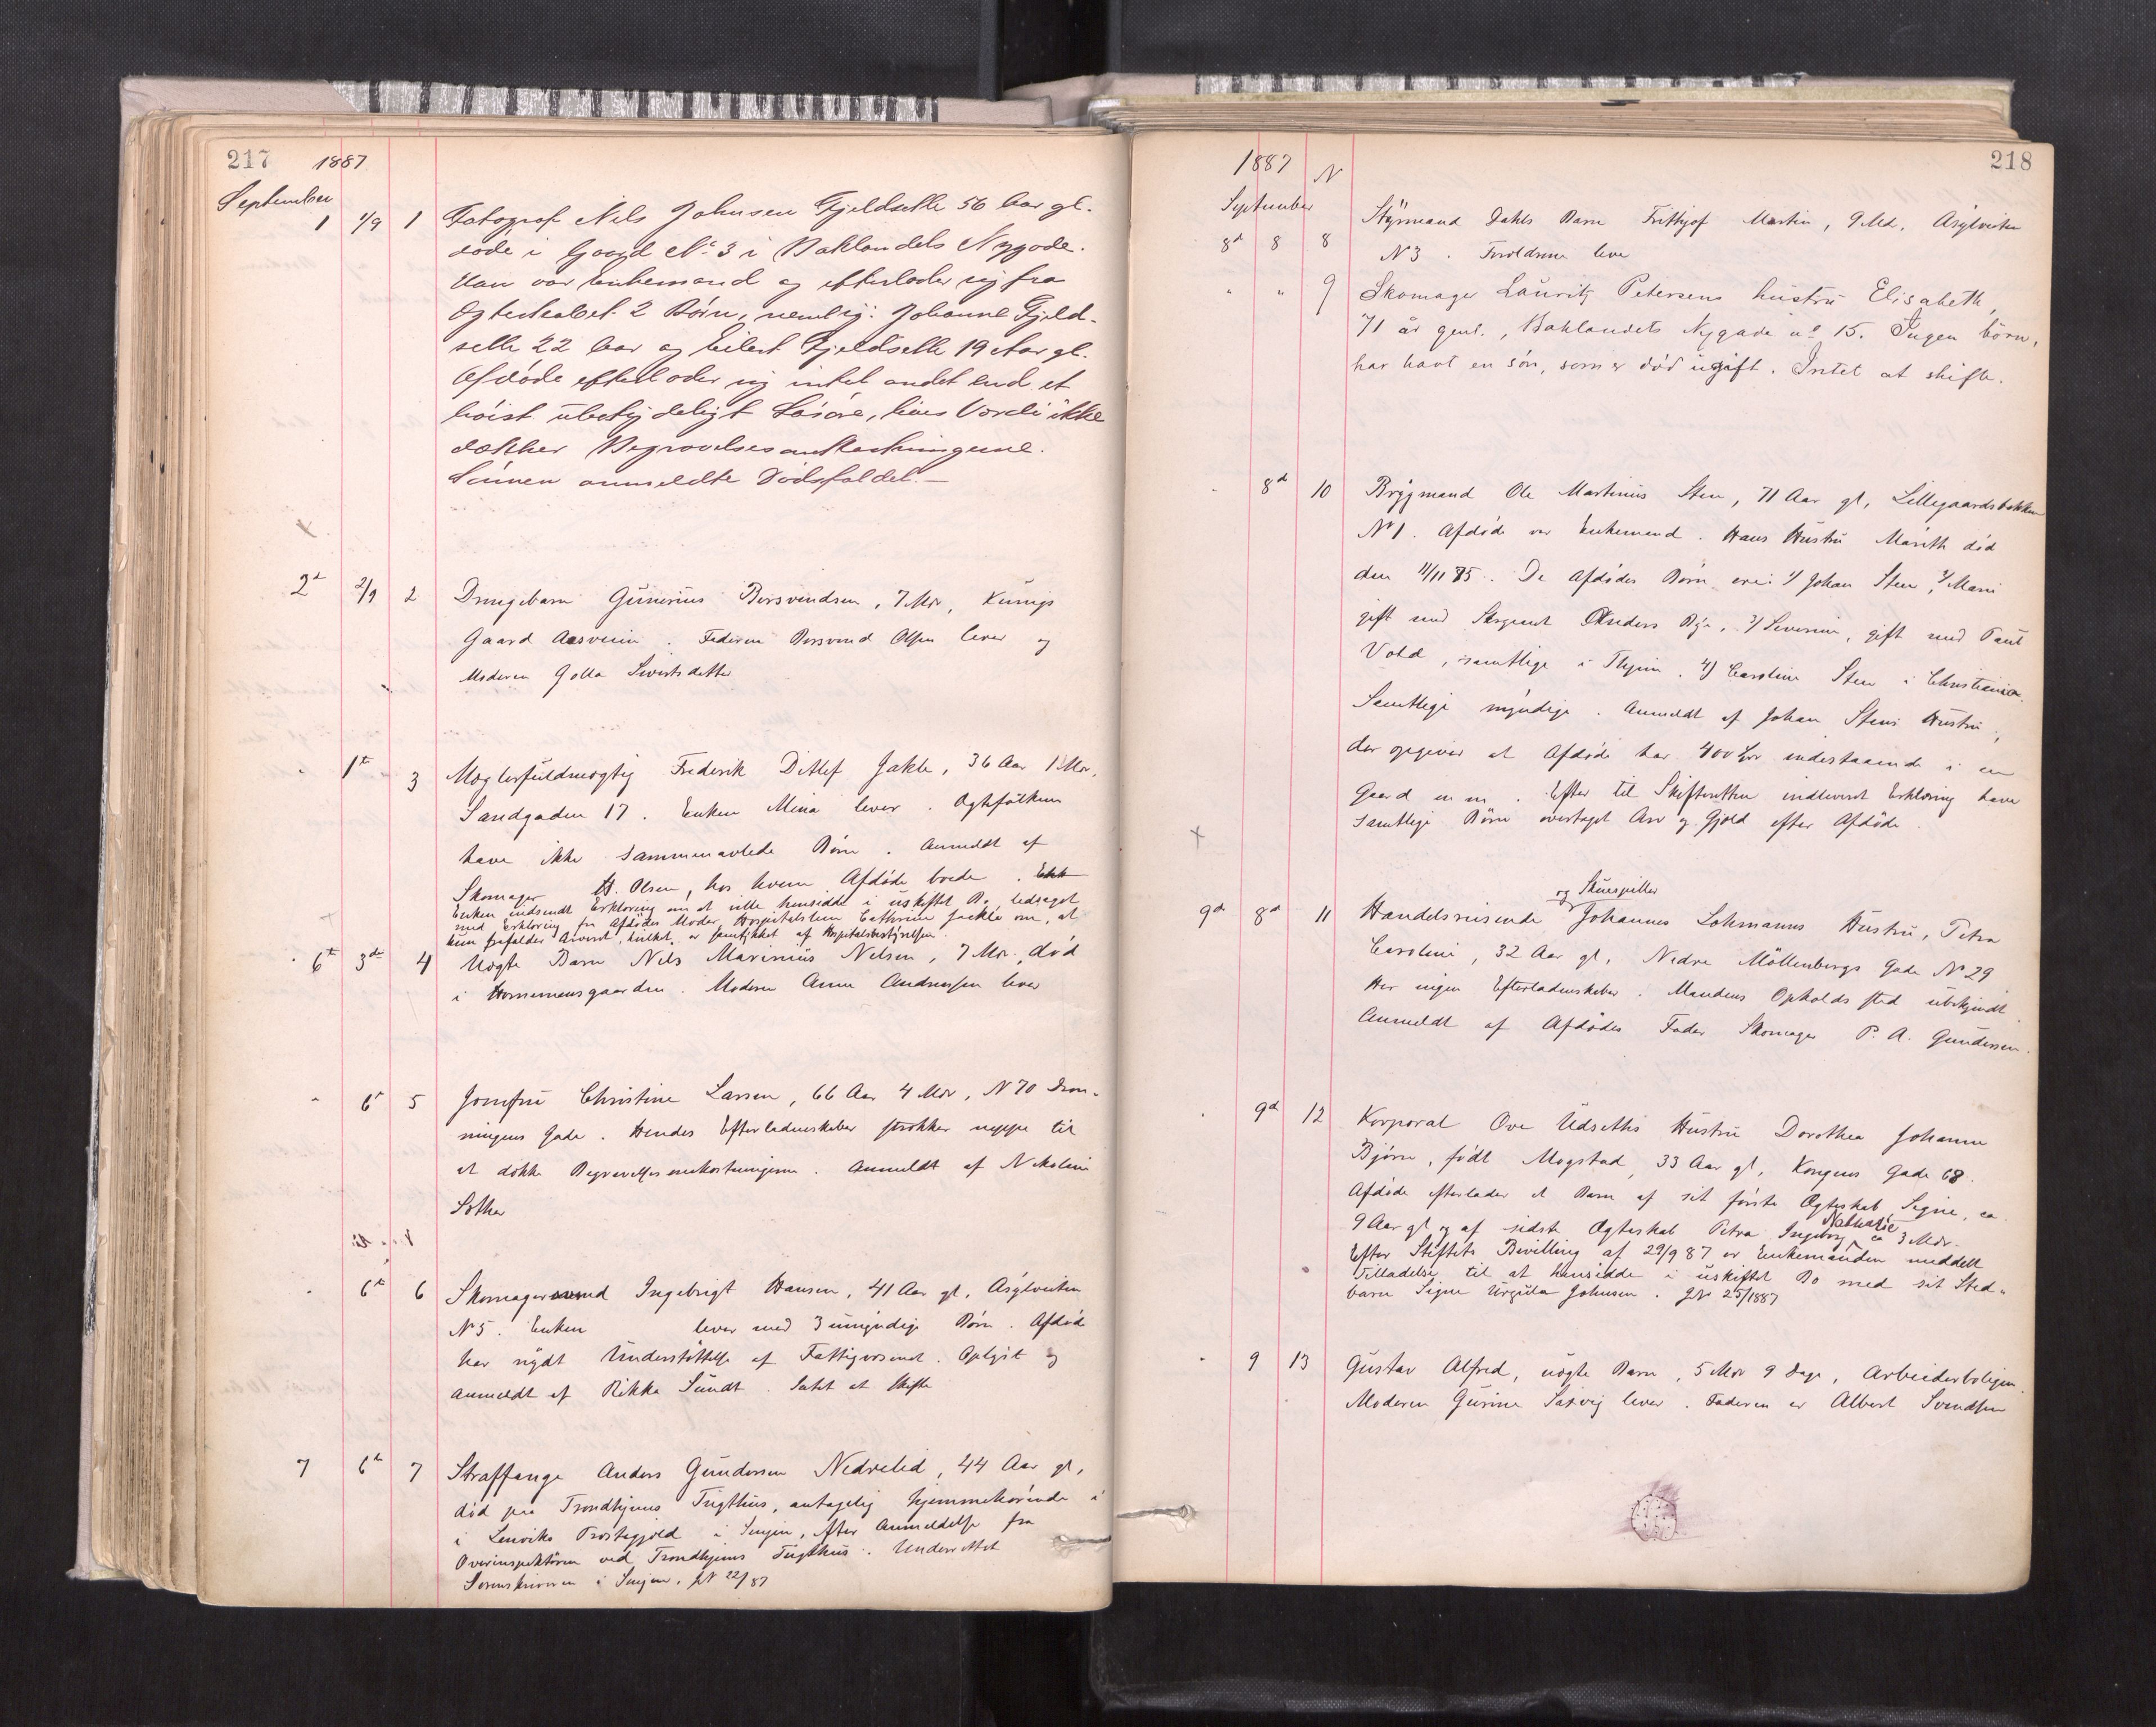 217 1887
September
1 1/9 1 Fotograf Nils Johnsen Fjeldsethe 56 Aar gl.
døde i Gaard No 3 i Baklandets Nygade.
Han var Enkemand og efterlader sig fra
Ægteskabet 2 Børn, nemlig: Johanne Fjeld-
sethe 22 Aar og Eilert Fjeldsethe 19 Aar gl.
Afdøde efterlader sig intet andet end et
høist ubetydeligt Løsøre, hvis Værdi ikke
dækker Begravelsesomkostningerne.
Sønnen anmeldte Dødsfaldet.—
2d 2/9 2 Drengebarn Gunerius Bersvendsen, 7 Mdr,
Gaard Aasveien. Faderen Bersvend Olsen lever og
Moderen Golla Sivertsdatter
1te 3 Mæglerfuldmægtig Frederik Ditlef Jakle, 36 Aar 1 Mdr,
Sandgaden 17. Enken Mina lever. Ægtefolkene
have ikke sammenavlede Børn. Anmeldt af
Skomager H. Olsen, hos hvem Afdøde boede.
Enken indsendt Erklæring om at ville hensidde i uskiftet Bo, ledsaget
med Erklæring fra Afdødes Moder, Hospitalslem Cathrine Jackle om, at
hun frafalder Arveret, hvilket er samtykket af Hospitalsbestyrelsen.
6te 3die 4 Uægte Barn Nils Marinius Nelsen, 7 Mdr., død
i Hornemansgaarden. Moderen Anne Andreassen lever
6te 5 Jomfru Christine Larsen, 66 Aar 4 Mdr, N 70 Dron-
ningens Gade. Hendes Efterladenskaber strækker neppe til
at dække Begravelsesomkostningerne. Anmeldt af Nikoline
Sother
6te 6 Skomagersvend Ingebrigt Hansen, 41 Aar gl, Asylveiten
N 5. Enken lever med 3 umyndige Børn. Afdøde
har nydt Understøttelse af Fattigvæsenet. Oplyst og
anmeldt af Rikka Sundt. Intet at skifte
7 6te 7 Straffange Anders Gundersen Nedrelid, 44 Aar gl,
død paa Trondhjems Tugthus, antagelig hjemmehørende i
i Lenviks Præstegjeld i Senjen, efter Anmeldelse fra
Overinspektøren ved Trondhjems Tugthus. Underrettet
Sorenskriveren i Senjen. JN 22/87
1887 N 218
September
8d 8 8 Styrmand Dahls Barn Frithjof Martin, 9 Md. Asylveiten
N 3. Forældrene leve
" " 9 Skomager Lauritz Petersens hustru Elisabeth,
71 år gml., Baklandets Nygade no 15. Ingen børn,
har havt en søn, som er død ugift. Intet at skifte.
8d 10 Brygmand Ole Martinus Sten, 71 Aar gl, Lillegaardsbakken
N 1. Afdøde var Enkemand. Hans Hustru Marith død
den 11/11 85. De Afdødes Børn ere: 1/ Johan Sten, 2/ Marie
gift med Sergeant Anders Bye, 3/ Severine, gift med Paul
Vold, samtlige i Thjem, 4) Caroline Sten i Christiania.
Samtlige myndige. Anmeldt af Johan Stens Hustru,
der opgiver at Afdøde har 400 Kr indestaaende i en
Gaard m m. Efter til Skifteretten indleveret Erklæring have
samtlige Børn overtaget Arv og Gjæld efter Afdøde.
9de 8de 11 Handelsreisende og Skuespiller Johannes Lohmanns Hustru, Petra
Caroline, 32 Aar gl, Nedre Möllenbergs Gade N 29
Har ingen Efterladenskaber. Mandens Opholdssted ubekjendt
Anmeldt af Afdødes Fader Skomager P. A. Gundersen.
9d 12 Korporal Ove Udseths Hustru Dorothea Johanne
Bjørn, født Mogstad, 33 Aar gl, Kongens Gade 68.
Afdøde efterlader et Barn af sit første Ægteskab, Signe, ca
9 Aar gl og af sidste Ægteskab Petra Ingeborg Nathalie ca 3 Mdr.
Efter Stiftets Bevilling af 29/9 87 er Enkemanden meddelt
Tilladelse til at hensidde i uskiftet Bo med sit Sted-
barn Signe Ursula Johnsen. JN 25/1887
9 13 Gustav Alfred, uægte Barn, 5 Mdr 9 Dage, Arbeiderboligen.
Moderen Gurine Saxvig lever. Faderen er Albert Svendsen